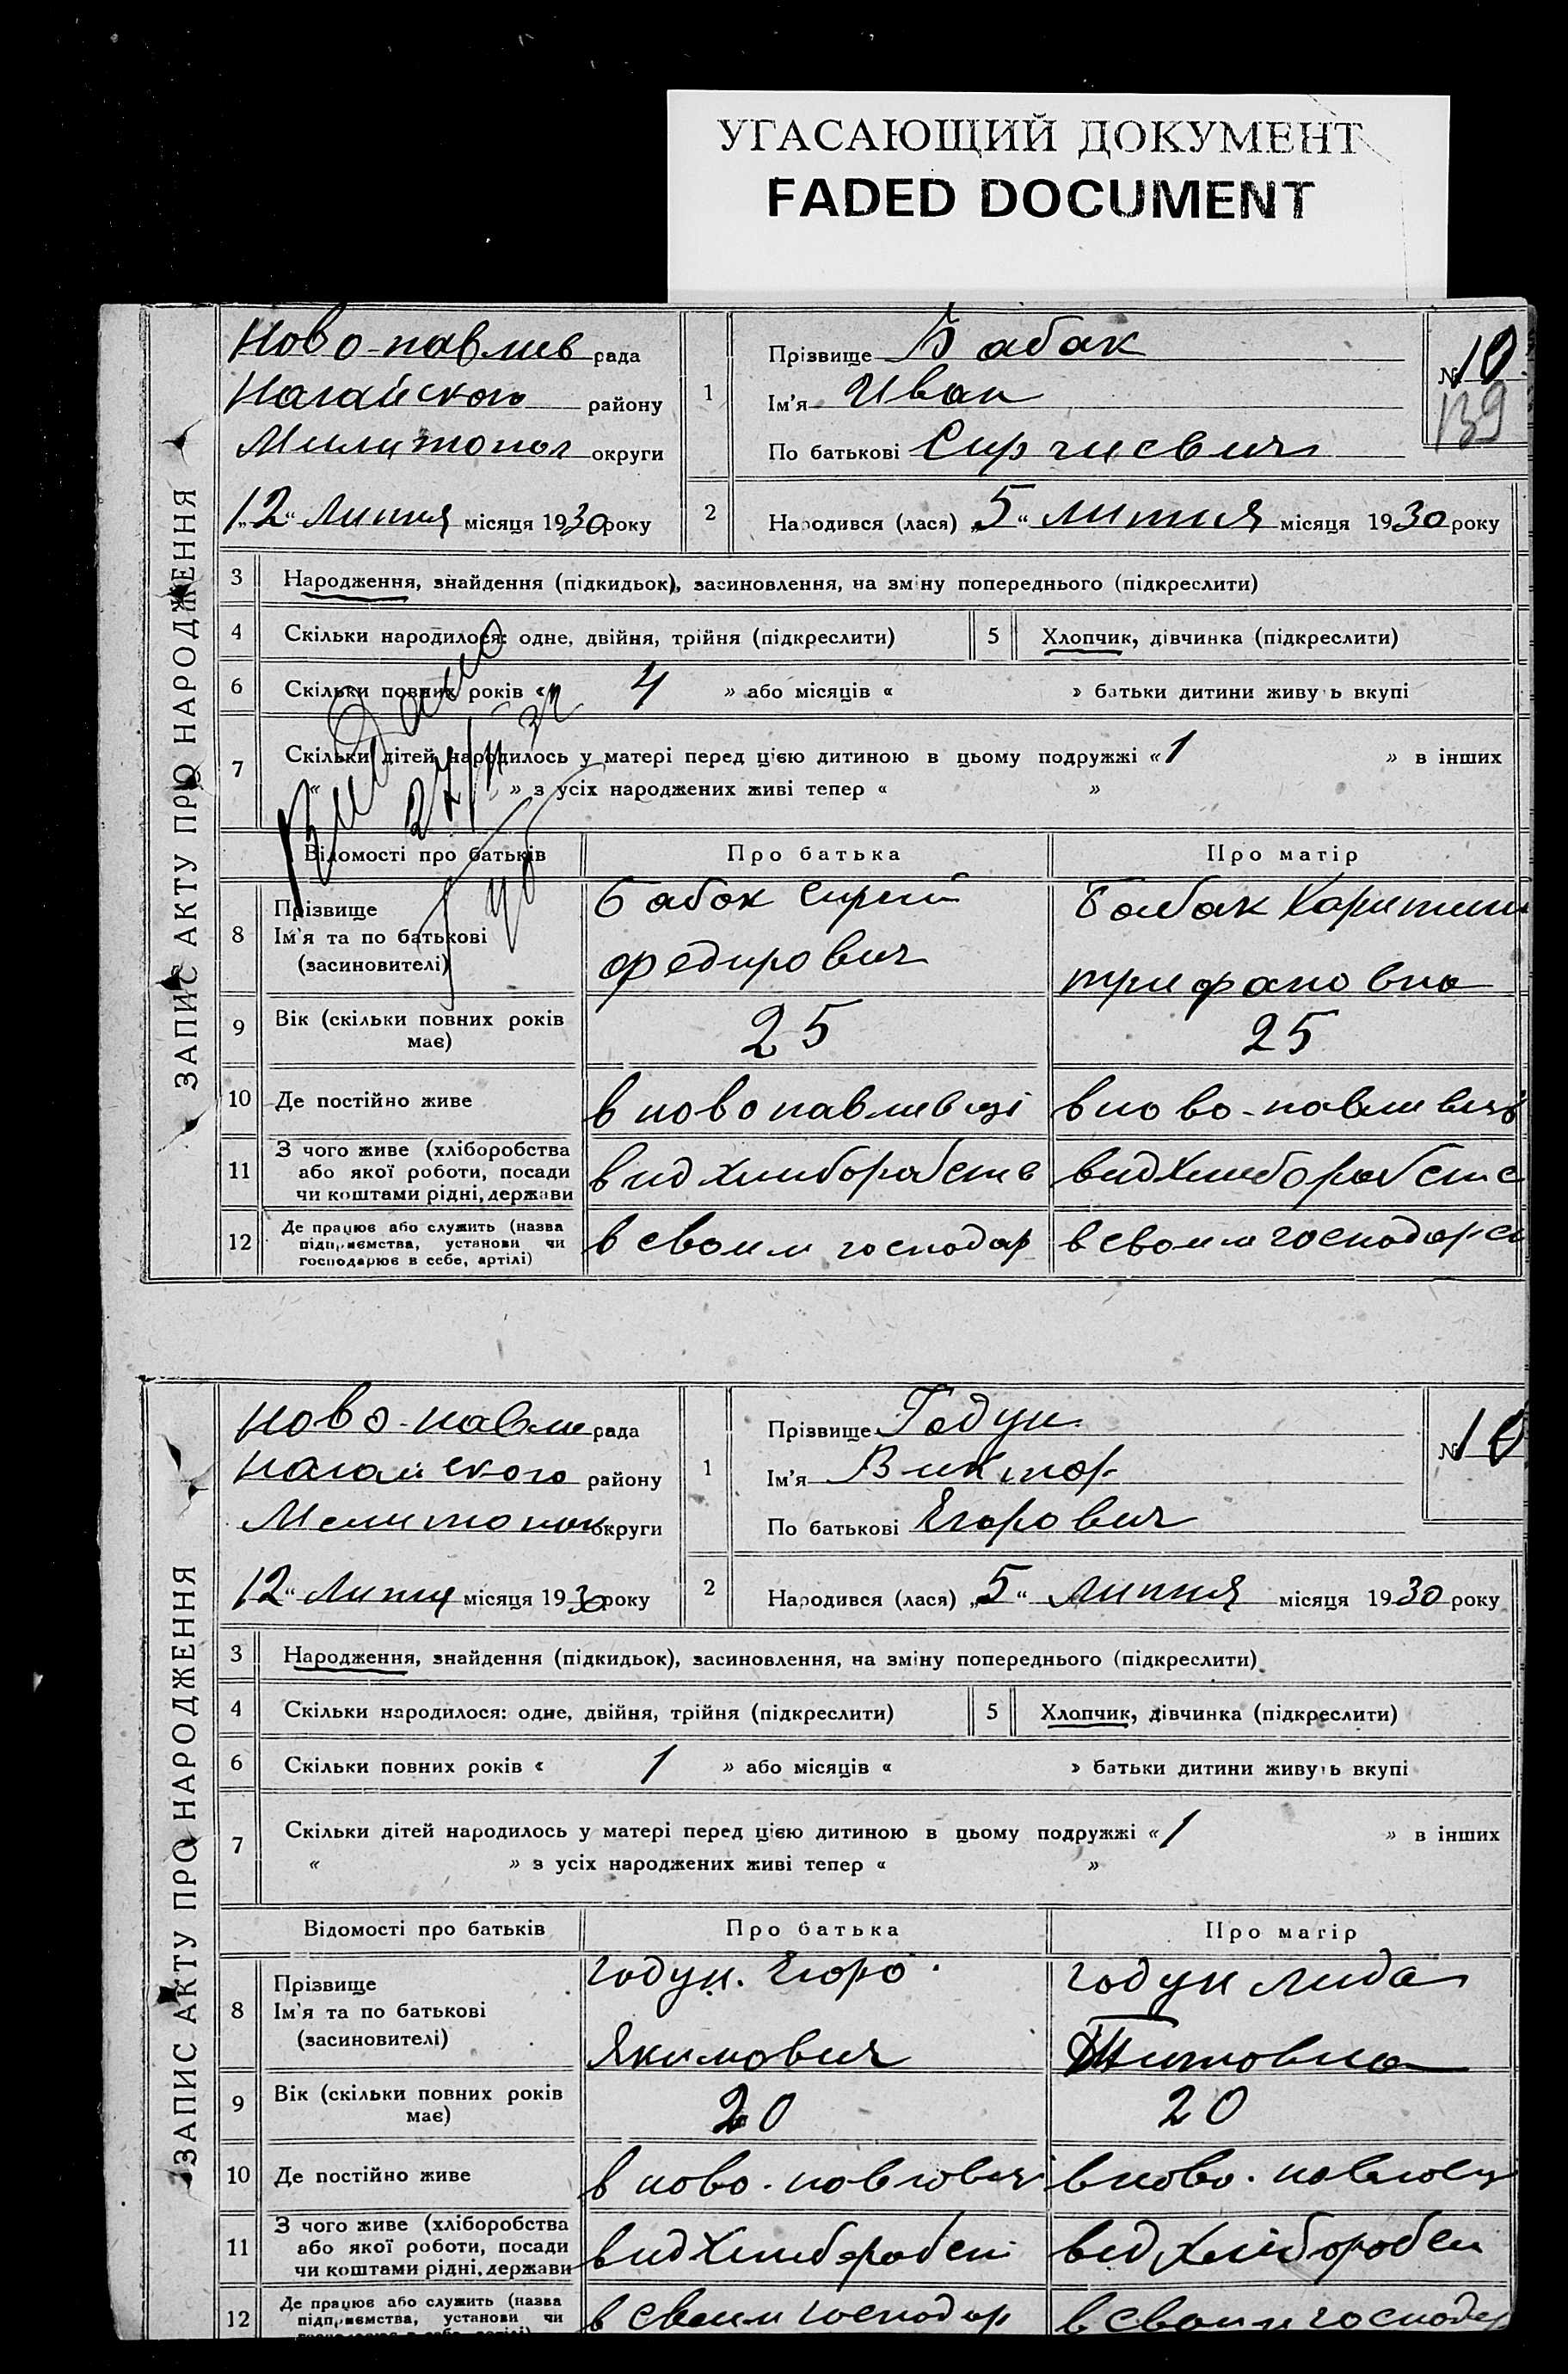 УГАСАЮЩИЙ ДОКУМЕНТ
FADED DOCUMENT
ЗАПИС АКТУ ПРО НАРОДЖЕННЯ
Ново-павлив рада
Нагайского району
Милитопол округи
„12“ Липня місяця 1930 року
1
Прізвище Бабак
Ім'я Иван
По батькові Сиргиевич
№ 10
139
2
Народився (лася) „5“ липня місяця 1930 року
3 Народження, знайдення (підкидьок), засиновлення, на зміну попереднього (підкреслити)
4 Скільки народилося: одне, двійня, трійня (підкреслити)
5 Хлопчик, дівчинка (підкреслити)
6 Скільки повних років « 4 » або місяців « » батьки дитини живуть вкупі
7 Скільки дітей народилось у матері перед цією дитиною в цьому подружжі «1 » в інших
« » з усіх народжених живі тепер « »
Видано
Відомості про батьків
Про батька
Про матір
8 Прізвище
Ім'я та по батькові
(засиновителі)
Бабак Сиргий
федирович
Бабак Харитини
трифановна
9 Вік (скільки повних років
має)
25
25
10 Де постійно живе
в новопавливці
в ново-павливці
11 З чого живе (хліборобства
або якої роботи, посади
чи коштами рідні, держави
вид хлиборобств
вид хлиборобств
12 Де працює або служить (назва
підприємства, установи чи
господарює в себе, артілі)
в своим господар
в своим господарс
ЗАПИС АКТУ ПРО НАРОДЖЕННЯ
Ново-павли рада
Нагайского району
Мелитопол округи
12“ Липня місяця 1930 року
1
Прізвище Годун
Ім'я Виктор
По батькові Егорович
№ 10
2
Народився (лася) „5“ липня місяця 1930 року
3 Народження, знайдення (підкидьок), засиновлення, на зміну попереднього (підкреслити)
4 Скільки народилося: одне, двійня, трійня (підкреслити)
5 Хлопчик, дівчинка (підкреслити)
6 Скільки повних років « 1 » або місяців « » батьки дитини живуть вкупі
7 Скільки дітей народилось у матері перед цією дитиною в цьому подружжі «1 » в інших
« » з усіх народжених живі тепер « »
Відомості про батьків
Про батька
Про матір
8 Прізвище
Ім'я та по батькові
(засиновителі)
Годун. Егоро
Якимович
Годун Лида
Титовна
9 Вік (скільки повних років
має)
20
20
10 Де постійно живе
в ново-павловці
в ново-павловц
11 З чого живе (хліборобства
або якої роботи, посади
чи коштами рідні, держави
вид хлиборобст
вид хліборобст
12 Де працює або служить (назва
підприємства, установи чи
в своим господар
в своим господар